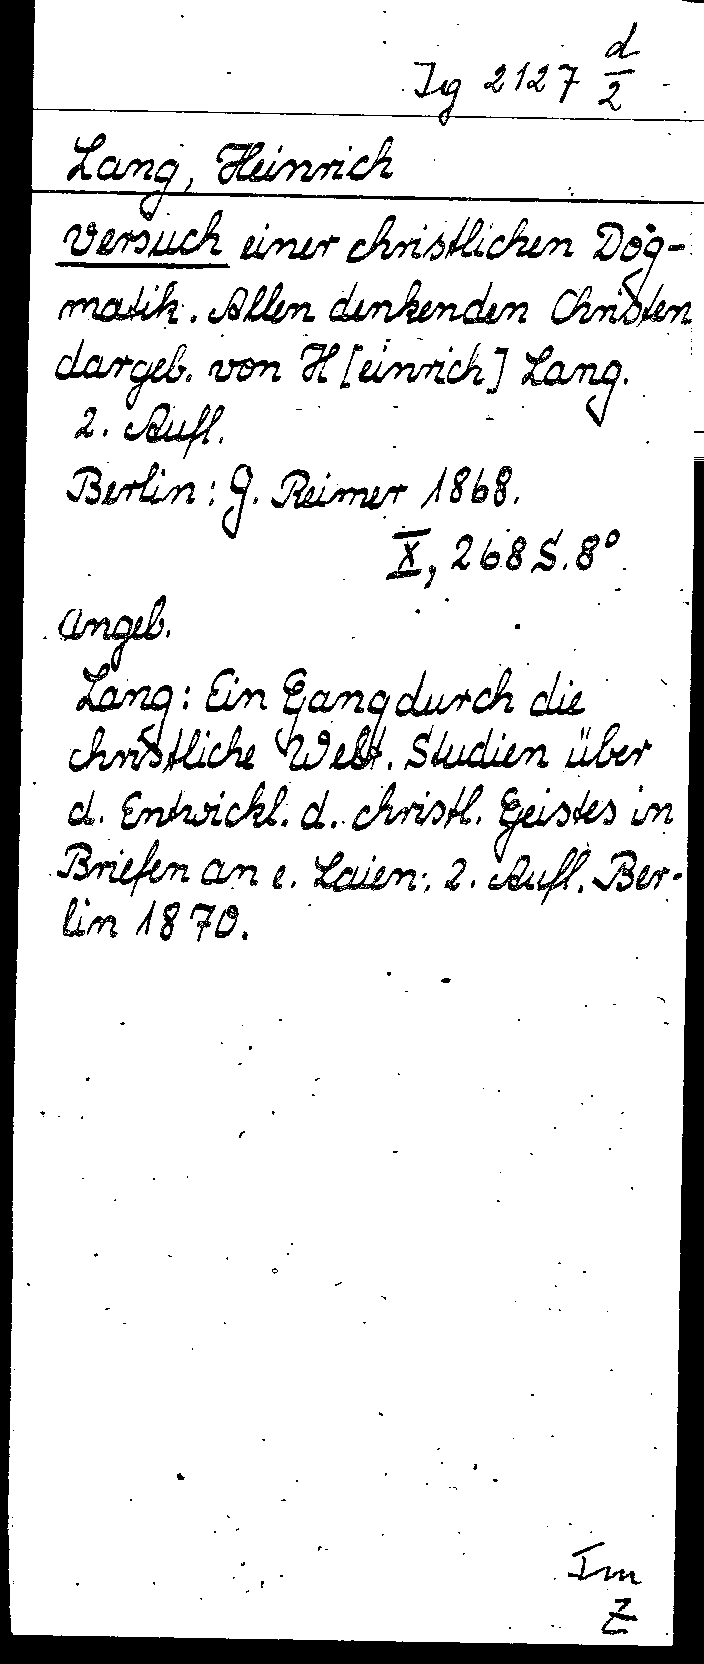 Ig 2127 d/2
Lang, Heinrich
Versuch einer christlichen Dog-
matik. Allen denkenden Christen
dargeb. von H[einrich] Lang.
2. Aufl.
Berlin: G. Reimer 1868.
X, 268 S. 8°
Angeb.
Lang: Ein Gang durch die
christliche Welt. Studien über
d. Entwickl. d. christl. Geistes in
Briefen an e. Laien. 2. Aufl. Ber-
lin 1870.
Im
Z